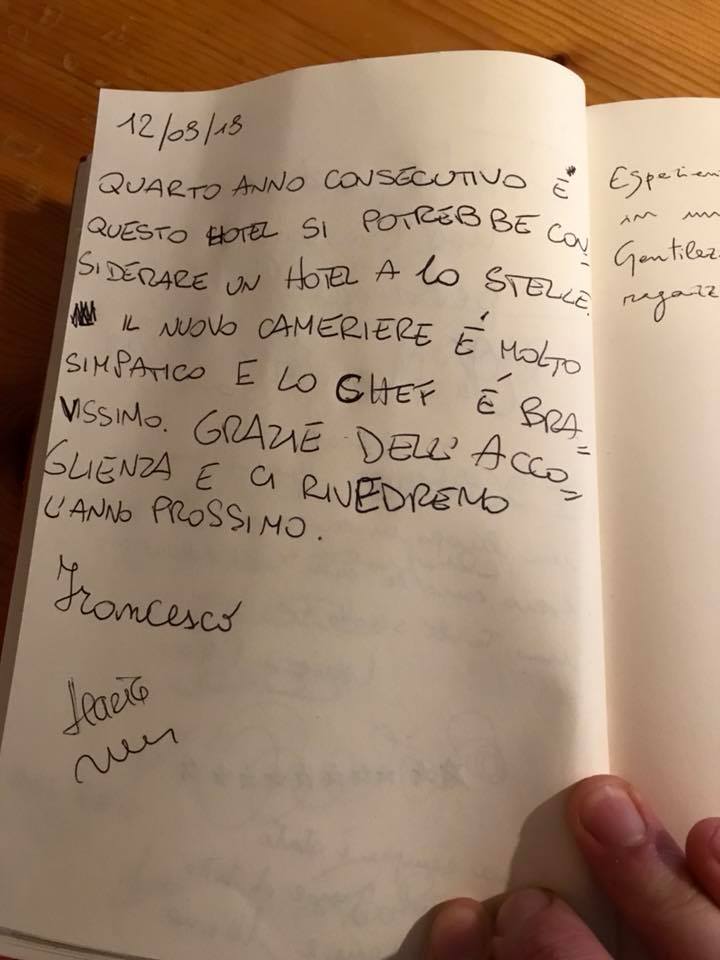 12/03/19
QUARTO ANNO CONSECUTIVO E
QUESTO HOTEL SI POTREBBE CON-
SIDERARE UN HOTEL A 10 STELLE.
IL NUOVO CAMERIERE É MOLTO
SIMPATICO E LO CHEF É BRA=
VISSIMO. GRAZIE DELL'ACCO=
GLIENZA E CI RIVEDREMO
L'ANNO PROSSIMO.
Francesco
Ilaria
in
Gentilez
ragazz